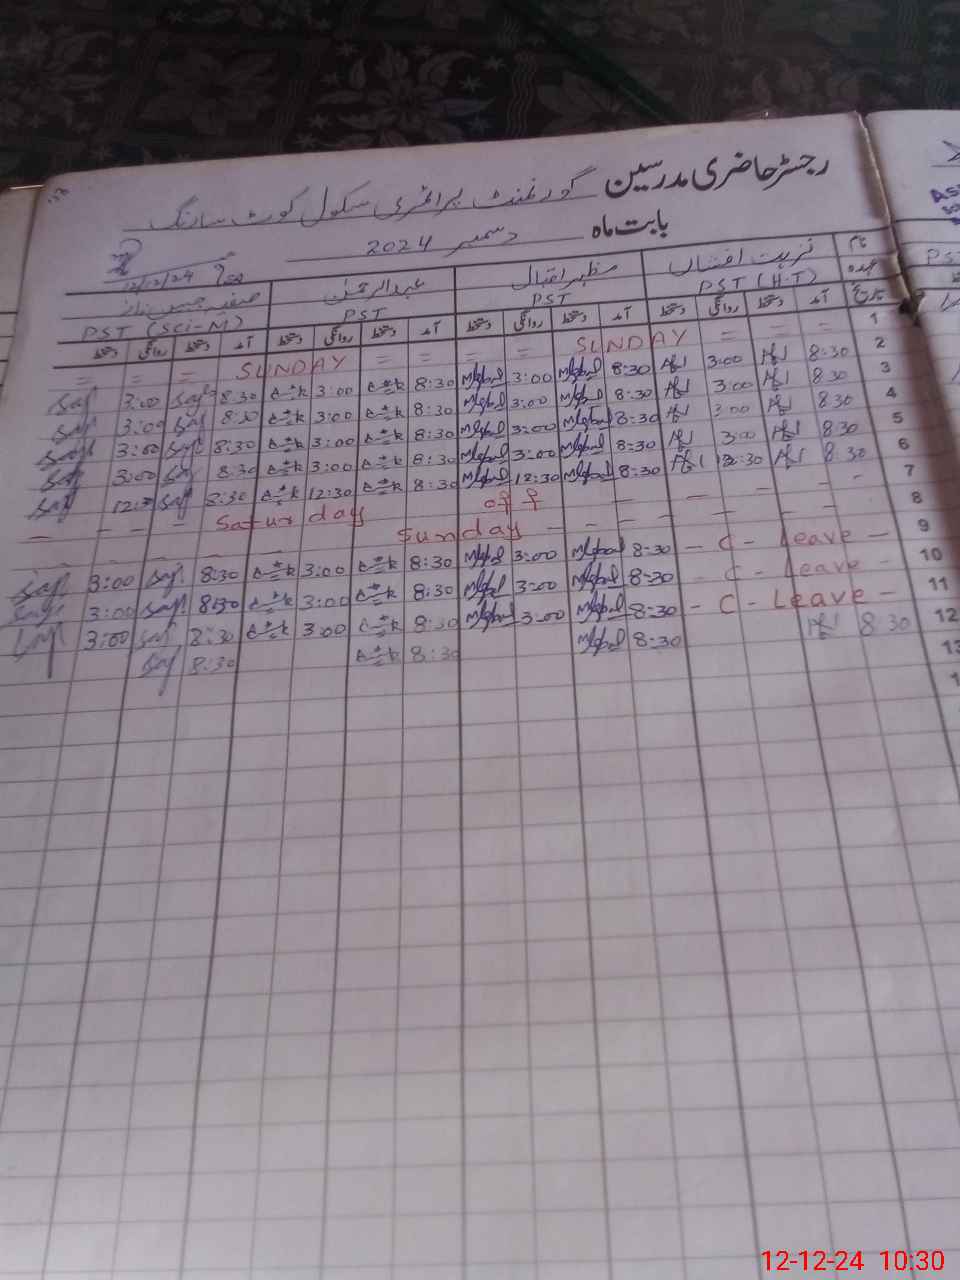 رجسٹر حاضری مدرسین گورنمنٹ پرائمری سکول کوٹ سارنگ
بابت ماہ دسمبر 2024
12/12/24
نام نزہت افشاں مظہر اقبال عبدالرحمٰن صفیہ جبیں ناز
عہدہ PST (H.T) PST PST PST (Sci-M)
تاریخ آمد دستخط روانگی دستخط آمد دستخط روانگی دستخط آمد دستخط روانگی دستخط آمد دستخط روانگی دستخط
1 = = = SUNDAY = = = = SUNDAY = = =
2 8:30 3:00 8:30 Miqbal 3:00 Miqbal 8:30 3:00 8:30 Saf 3:00 Saf
3 8:30 3:00 8:30 Miqbal 3:00 Miqbal 8:30 3:00 8:30 Saf 3:00 Saf
4 8:30 3:00 8:30 Miqbal 3:00 Miqbal 8:30 3:00 8:30 Saf 3:00 Saf
5 8:30 3:00 8:30 Miqbal 3:00 Miqbal 8:30 3:00 8:30 Saf 3:00 Saf
6 8:30 12:30 8:30 Miqbal 12:30 Miqbal 8:30 12:30 8:30 Saf 12:3 Saf
7 - - - - - Saturday off - - - -
8 - - - - - - Sunday - - - -
9 - C - Leave - 8:30 Miqbal 3:00 Miqbal 8:30 3:00 8:30 Saf 3:00 Saf
10 - C - Leave - 8:30 Miqbal 3:00 Miqbal 8:30 3:00 8:30 Saf 3:00 Saf
11 - C - Leave - 8:30 Miqbal 3:00 Miqbal 8:30 3:00 8:30 Saf 3:00 Saf
12 8:30 8:30 Miqbal 8:30 8:30 Saf
13
PST
12-12-24 10:30